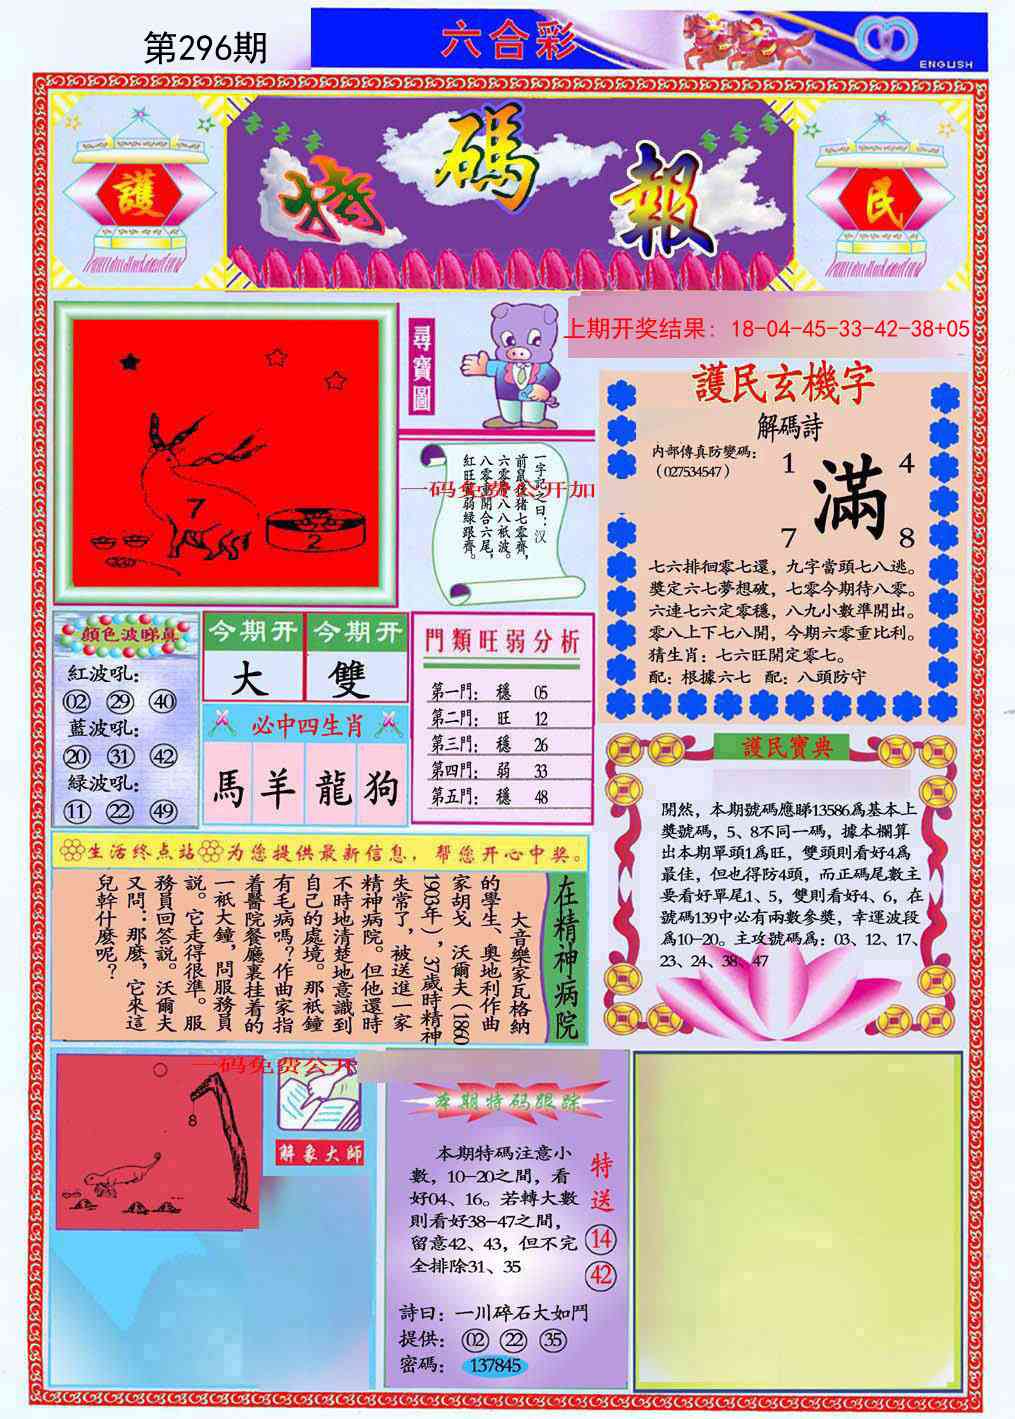 第296期
六合彩
ENGLISH
護
特碼報
民
7
2
尋寶圖
上期开奖结果：18-04-45-33-42-38+05
一字記之曰：汉
前鼠後猪七零齊，
六零八八祇波。
八零重開合六尾，
紅旺藍弱綠跟齊。
一码免费公开加
護民玄機字
解碼詩
内部傳真防變碼：
（027534547）
1
4
滿
7
8
七六排徊零七還，九字當頭七八逃。
獎定六七夢想破，七零今期待八零。
六連七六定零穩，八九小數準開出。
零八上下七八開，今期六零重比利。
猜生肖：七六旺開定零七。
配：根據六七　配：八頭防守
顔色波睇真
紅波吼：
02 29 40
藍波吼：
20 31 42
緑波吼：
11 22 49
今期开 今期开
大 雙
必中四生肖
馬 羊 龍 狗
門類旺弱分析
第一門： 穩 05
第二門： 旺 12
第三門： 穩 26
第四門： 弱 33
第五門： 穩 48
護民寶典
開然，本期號碼應睇13586爲基本上
獎號碼，5、8不同一碼，據本欄算
出本期單頭1爲旺，雙頭則看好4爲
最佳，但也得防4頭，而正碼尾數主
要看好單尾1、5，雙則看好4、6，在
號碼139中必有兩數參獎，幸運波段
爲10-20。主攻號碼爲：03、12、17、
23、24、38、47
生活终点站 为您提供最新信息，帮您开心中奖。
在精神病院
大音樂家瓦格納
的學生、奧地利作曲
家胡戈　沃爾夫（1860
1903年），37歲時精神
失常了，被送進一家
精神病院。但他還時
不時地清楚地意識到
自己的處境。那衹鐘
有毛病嗎？作曲家指
着醫院餐廳裏挂着的
一衹大鐘，問服務員
説。它走得很準。服
務員回答説。沃爾夫
又問：那麽，它來這
兒幹什麽呢？
8
一码免费公开
解象大師
本期特码跟踪
本期特码注意小
數，10-20之間，看
好04、16。若轉大數
則看好38-47之間，
留意42、43，但不完
全排除31、35
特送
14
42
詩曰：一川碎石大如鬥
提供：02 22 35
密碼：137845